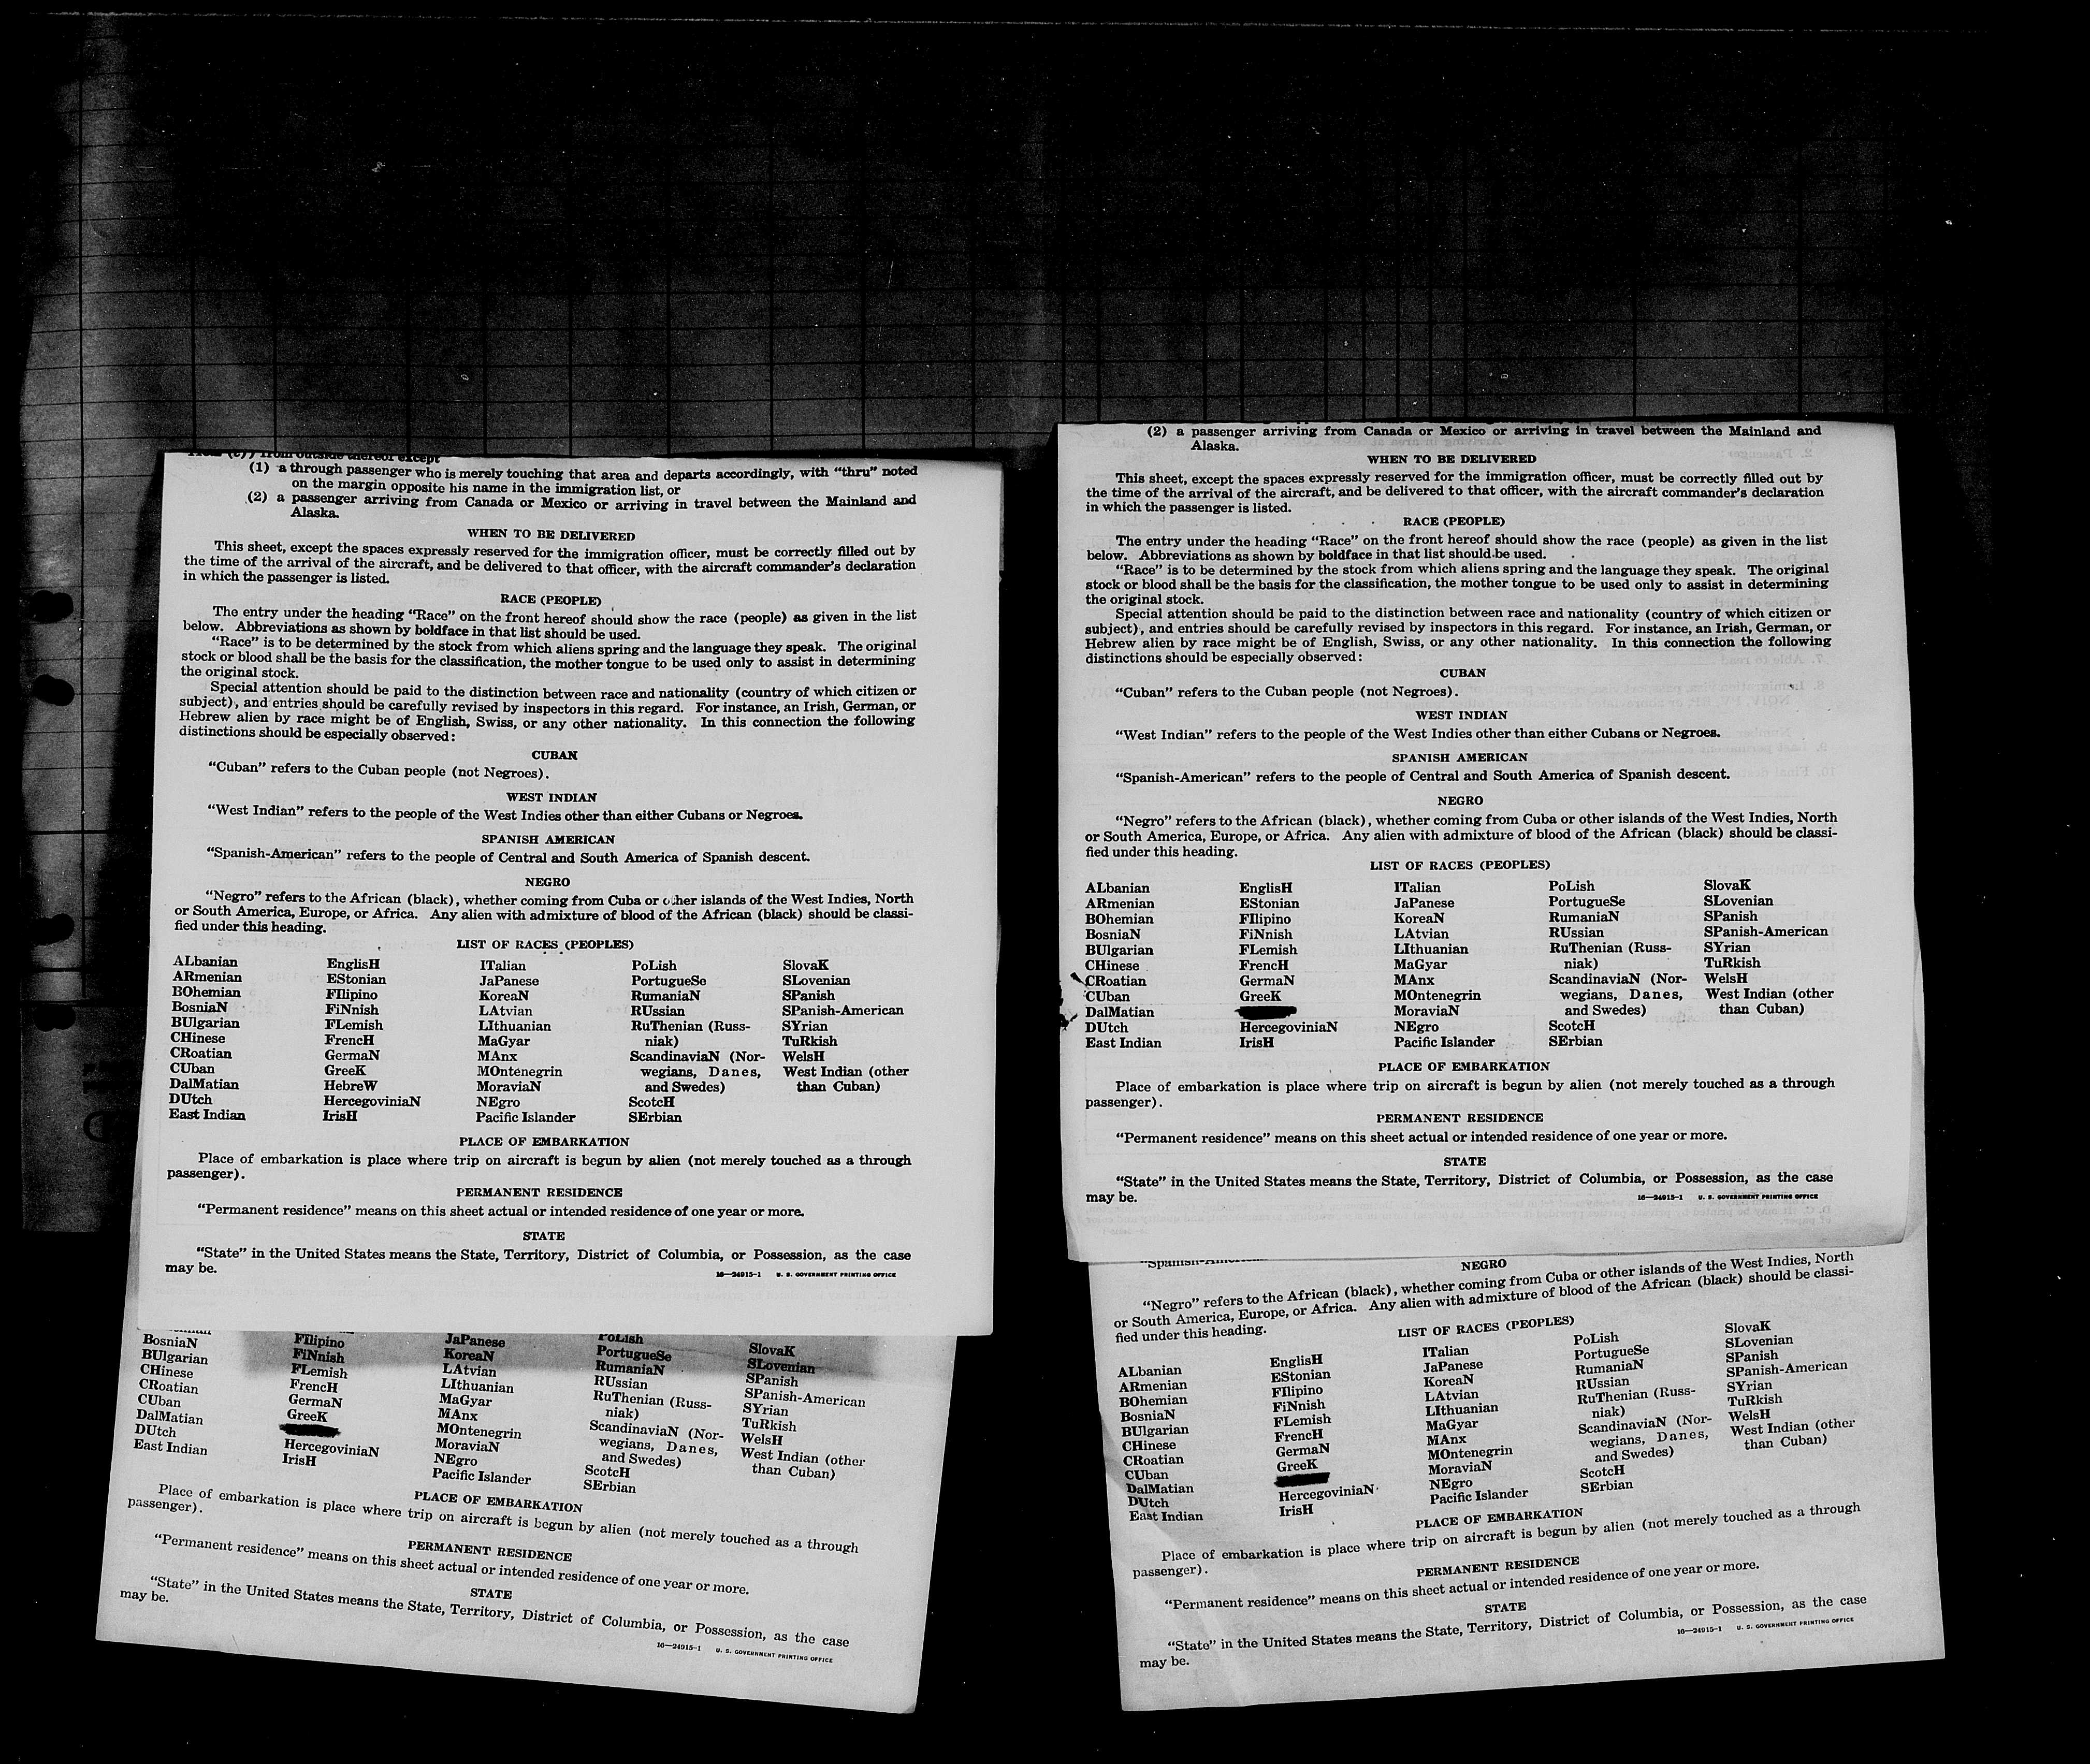 from (c)) from outside thereof except
(1) a through passenger who is merely touching that area and departs accordingly, with “thru” noted
on the margin opposite his name in the immigration list, or
(2) a passenger arriving from Canada or Mexico or arriving in travel between the Mainland and
Alaska.
WHEN TO BE DELIVERED
This sheet, except the spaces expressly reserved for the immigration officer, must be correctly filled out by
the time of the arrival of the aircraft, and be delivered to that officer, with the aircraft commander’s declaration
in which the passenger is listed.
RACE (PEOPLE)
The entry under the heading “Race” on the front hereof should show the race (people) as given in the list
below. Abbreviations as shown by boldface in that list should be used.
“Race” is to be determined by the stock from which aliens spring and the language they speak. The original
stock or blood shall be the basis for the classification, the mother tongue to be used only to assist in determining
the original stock.
Special attention should be paid to the distinction between race and nationality (country of which citizen or
subject), and entries should be carefully revised by inspectors in this regard. For instance, an Irish, German, or
Hebrew alien by race might be of English, Swiss, or any other nationality. In this connection the following
distinctions should be especially observed:
CUBAN
“Cuban” refers to the Cuban people (not Negroes).
WEST INDIAN
“West Indian” refers to the people of the West Indies other than either Cubans or Negroes.
SPANISH AMERICAN
“Spanish-American” refers to the people of Central and South America of Spanish descent.
NEGRO
“Negro” refers to the African (black), whether coming from Cuba or other islands of the West Indies, North
or South America, Europe, or Africa. Any alien with admixture of blood of the African (black) should be classi-
fied under this heading.
LIST OF RACES (PEOPLES)
ALbanian
ARmenian
BOhemian
BosniaN
BUlgarian
CHinese
CRoatian
CUban
DalMatian
DUtch
East Indian
EnglisH
EStonian
FIlipino
FiNnish
FLemish
FrencH
GermaN
GreeK
HebreW
HercegoviniaN
IrisH
ITalian
JaPanese
KoreaN
LAtvian
LIthuanian
MaGyar
MAnx
MOntenegrin
MoraviaN
NEgro
Pacific Islander
PoLish
PortugueSe
RumaniaN
RUssian
RuThenian (Russ-
niak)
ScandinaviaN (Nor-
wegians, Danes,
and Swedes)
ScotcH
SErbian
SlovaK
SLovenian
SPanish
SPanish-American
SYrian
TuRkish
WelsH
West Indian (other
than Cuban)
PLACE OF EMBARKATION
Place of embarkation is place where trip on aircraft is begun by alien (not merely touched as a through
passenger).
PERMANENT RESIDENCE
“Permanent residence” means on this sheet actual or intended residence of one year or more.
STATE
“State” in the United States means the State, Territory, District of Columbia, or Possession, as the case
may be.
16—24915-1 U. S. GOVERNMENT PRINTING OFFICE
BosniaN
BUlgarian
CHinese
CRoatian
CUban
DalMatian
DUtch
East Indian
FIlipino
FiNnish
FLemish
FrencH
GermaN
GreeK
HercegoviniaN
IrisH
JaPanese
KoreaN
LAtvian
LIthuanian
MaGyar
MAnx
MOntenegrin
MoraviaN
NEgro
Pacific Islander
PoLish
PortugueSe
RumaniaN
RUssian
RuThenian (Russ-
niak)
ScandinaviaN (Nor-
wegians, Danes,
and Swedes)
ScotcH
SErbian
SlovaK
SLovenian
SPanish
SPanish-American
SYrian
TuRkish
WelsH
West Indian (other
than Cuban)
PLACE OF EMBARKATION
Place of embarkation is place where trip on aircraft is begun by alien (not merely touched as a through
passenger).
PERMANENT RESIDENCE
“Permanent residence” means on this sheet actual or intended residence of one year or more.
STATE
“State” in the United States means the State, Territory, District of Columbia, or Possession, as the case
may be.
16—24915-1 U. S. GOVERNMENT PRINTING OFFICE
(2) a passenger arriving from Canada or Mexico or arriving in travel between the Mainland and
Alaska.
WHEN TO BE DELIVERED
This sheet, except the spaces expressly reserved for the immigration officer, must be correctly filled out by
the time of the arrival of the aircraft, and be delivered to that officer, with the aircraft commander’s declaration
in which the passenger is listed.
RACE (PEOPLE)
The entry under the heading “Race” on the front hereof should show the race (people) as given in the list
below. Abbreviations as shown by boldface in that list should be used.
“Race” is to be determined by the stock from which aliens spring and the language they speak. The original
stock or blood shall be the basis for the classification, the mother tongue to be used only to assist in determining
the original stock.
Special attention should be paid to the distinction between race and nationality (country of which citizen or
subject), and entries should be carefully revised by inspectors in this regard. For instance, an Irish, German, or
Hebrew alien by race might be of English, Swiss, or any other nationality. In this connection the following
distinctions should be especially observed:
CUBAN
“Cuban” refers to the Cuban people (not Negroes).
WEST INDIAN
“West Indian” refers to the people of the West Indies other than either Cubans or Negroes.
SPANISH AMERICAN
“Spanish-American” refers to the people of Central and South America of Spanish descent.
NEGRO
“Negro” refers to the African (black), whether coming from Cuba or other islands of the West Indies, North
or South America, Europe, or Africa. Any alien with admixture of blood of the African (black) should be classi-
fied under this heading.
LIST OF RACES (PEOPLES)
ALbanian
ARmenian
BOhemian
BosniaN
BUlgarian
CHinese
CRoatian
CUban
DalMatian
DUtch
East Indian
EnglisH
EStonian
FIlipino
FiNnish
FLemish
FrencH
GermaN
GreeK
HercegoviniaN
IrisH
ITalian
JaPanese
KoreaN
LAtvian
LIthuanian
MaGyar
MAnx
MOntenegrin
MoraviaN
NEgro
Pacific Islander
PoLish
PortugueSe
RumaniaN
RUssian
RuThenian (Russ-
niak)
ScandinaviaN (Nor-
wegians, Danes,
and Swedes)
ScotcH
SErbian
SlovaK
SLovenian
SPanish
SPanish-American
SYrian
TuRkish
WelsH
West Indian (other
than Cuban)
PLACE OF EMBARKATION
Place of embarkation is place where trip on aircraft is begun by alien (not merely touched as a through
passenger).
PERMANENT RESIDENCE
“Permanent residence” means on this sheet actual or intended residence of one year or more.
STATE
“State” in the United States means the State, Territory, District of Columbia, or Possession, as the case
may be.
16—24915-1 U. S. GOVERNMENT PRINTING OFFICE
NEGRO
“Negro” refers to the African (black), whether coming from Cuba or other islands of the West Indies, North
or South America, Europe, or Africa. Any alien with admixture of blood of the African (black) should be classi-
fied under this heading.
LIST OF RACES (PEOPLES)
ALbanian
ARmenian
BOhemian
BosniaN
BUlgarian
CHinese
CRoatian
CUban
DalMatian
DUtch
East Indian
EnglisH
EStonian
FIlipino
FiNnish
FLemish
FrencH
GermaN
GreeK
HercegoviniaN
IrisH
ITalian
JaPanese
KoreaN
LAtvian
LIthuanian
MaGyar
MAnx
MOntenegrin
MoraviaN
NEgro
Pacific Islander
PoLish
PortugueSe
RumaniaN
RUssian
RuThenian (Russ-
niak)
ScandinaviaN (Nor-
wegians, Danes,
and Swedes)
ScotcH
SErbian
SlovaK
SLovenian
SPanish
SPanish-American
SYrian
TuRkish
WelsH
West Indian (other
than Cuban)
PLACE OF EMBARKATION
Place of embarkation is place where trip on aircraft is begun by alien (not merely touched as a through
passenger).
PERMANENT RESIDENCE
“Permanent residence” means on this sheet actual or intended residence of one year or more.
STATE
“State” in the United States means the State, Territory, District of Columbia, or Possession, as the case
may be.
16—24915-1 U. S. GOVERNMENT PRINTING OFFICE